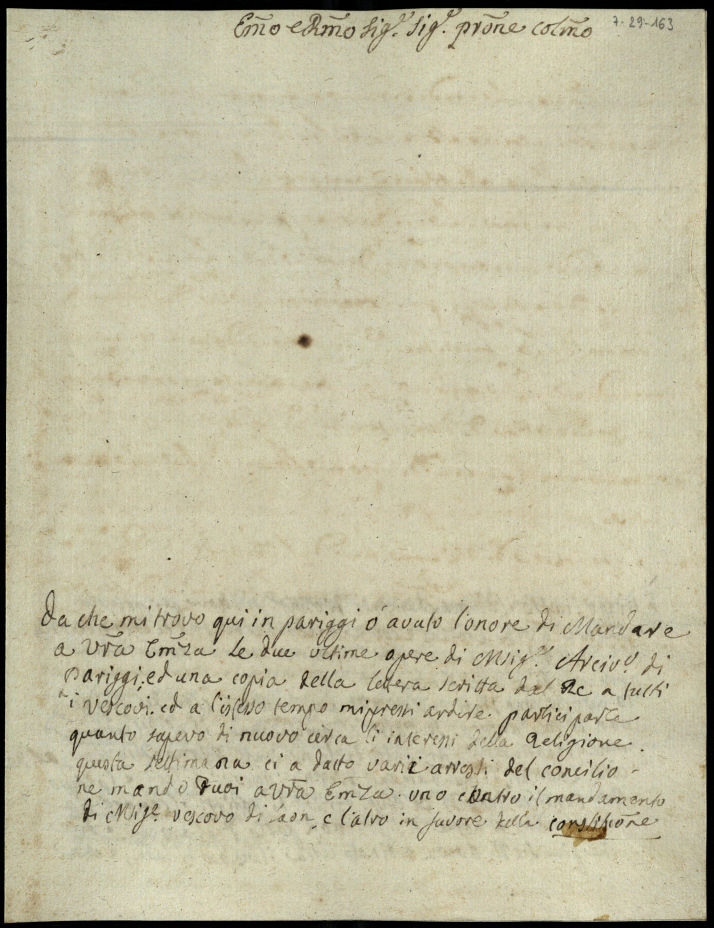 Em̃o e Rm̃o Sig.r Sig.r prõne colm̃o
7-29-163
Da che mi trovo qui in pariggi ò avuto l'onore di Mandare
a vr̃a Em̃za Le due ultime opere di Msig.r Arciv.o di
Pariggi, ed una copia della lettera scritta dal Re a tutti
i vescovi. ed a l'istesso tempo mi presi ardire. partici parle
quanto sapevo di nuovo circa li interessi della Religione.
questa settimana ci a datto varii arresti del concilio
ne mando duoi a vr̃a Em̃za. uno contro il mandamento
di Msig.r vescovo di laon, e l'altro in favore della constitiõne